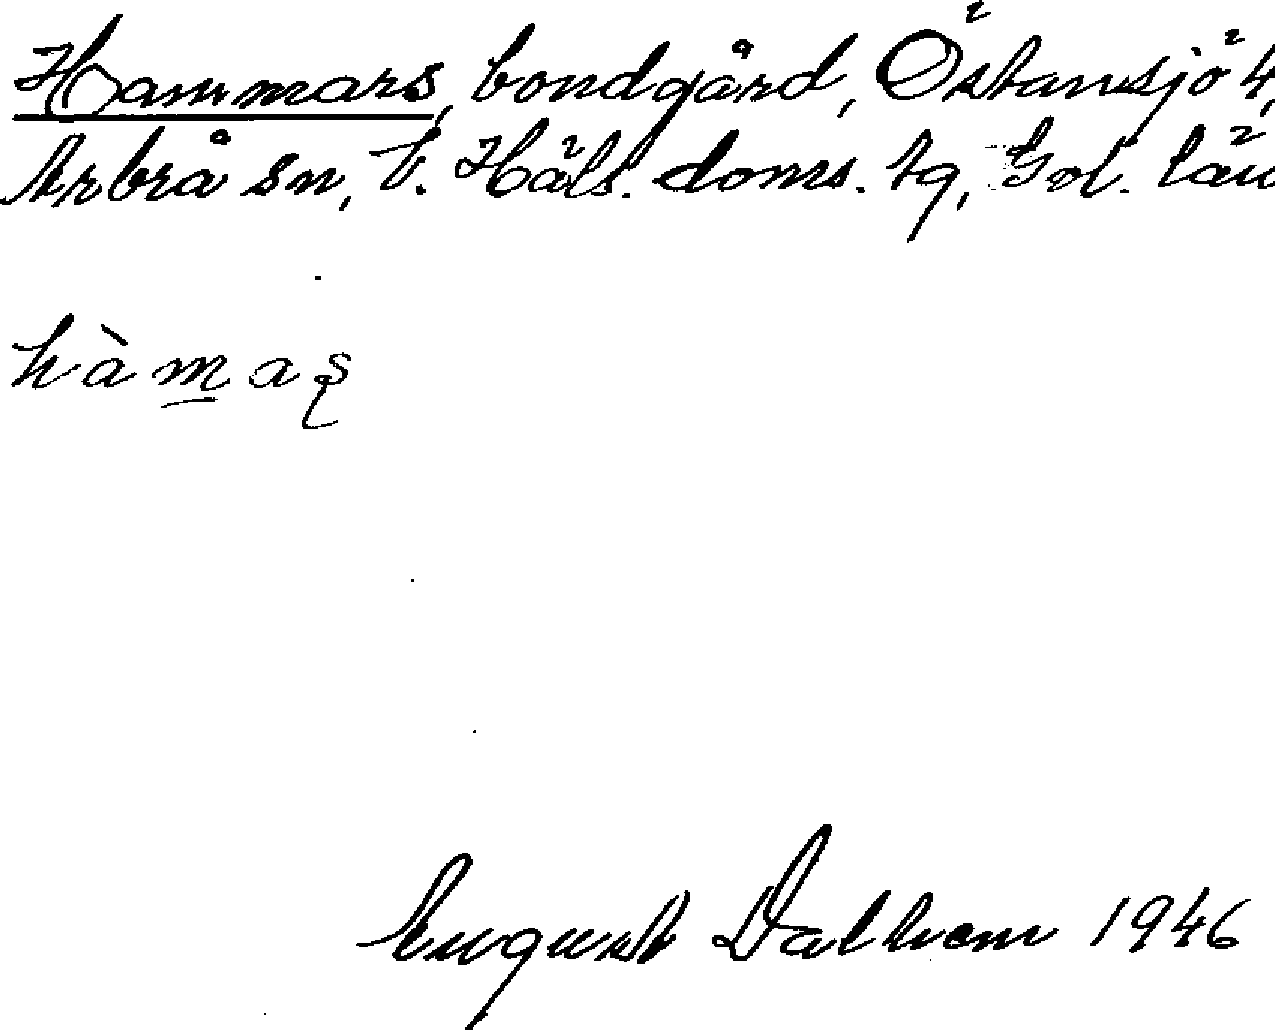 Hammars, bondgård, Östansjö 4,
Arbrå sn, V. Häls. doms. tg, Gvl. län
hàm̲aş
August Dalhem 1946